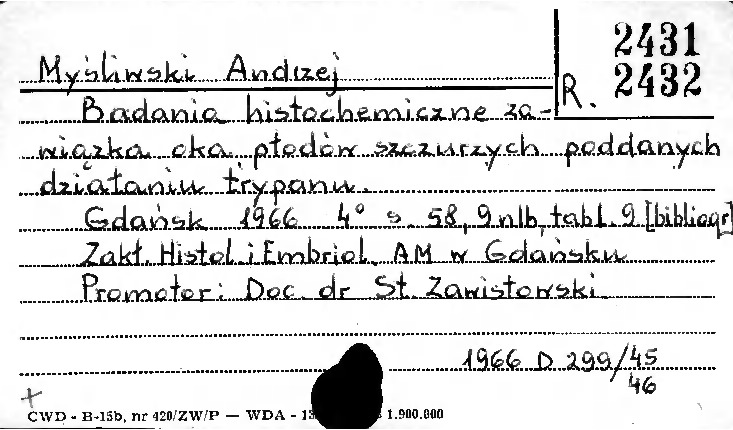 2431
Myśliwski Andrzej R. 2432
Badania histochemiczne za-
wiązka oka płodów szczurzych poddanych
działaniu trypanu.
Gdańsk 1966 4° s. 58, 9 nlb, tabl. 9 [bibliogr]
Zakł. Histol. i Embriol. AM w Gdańsku
Promotor: Doc. dr St. Zawistowski.
1966 D 299/45
46
+
CWD - B-15b, nr 420/ZW/P — WDA - 1.900.000